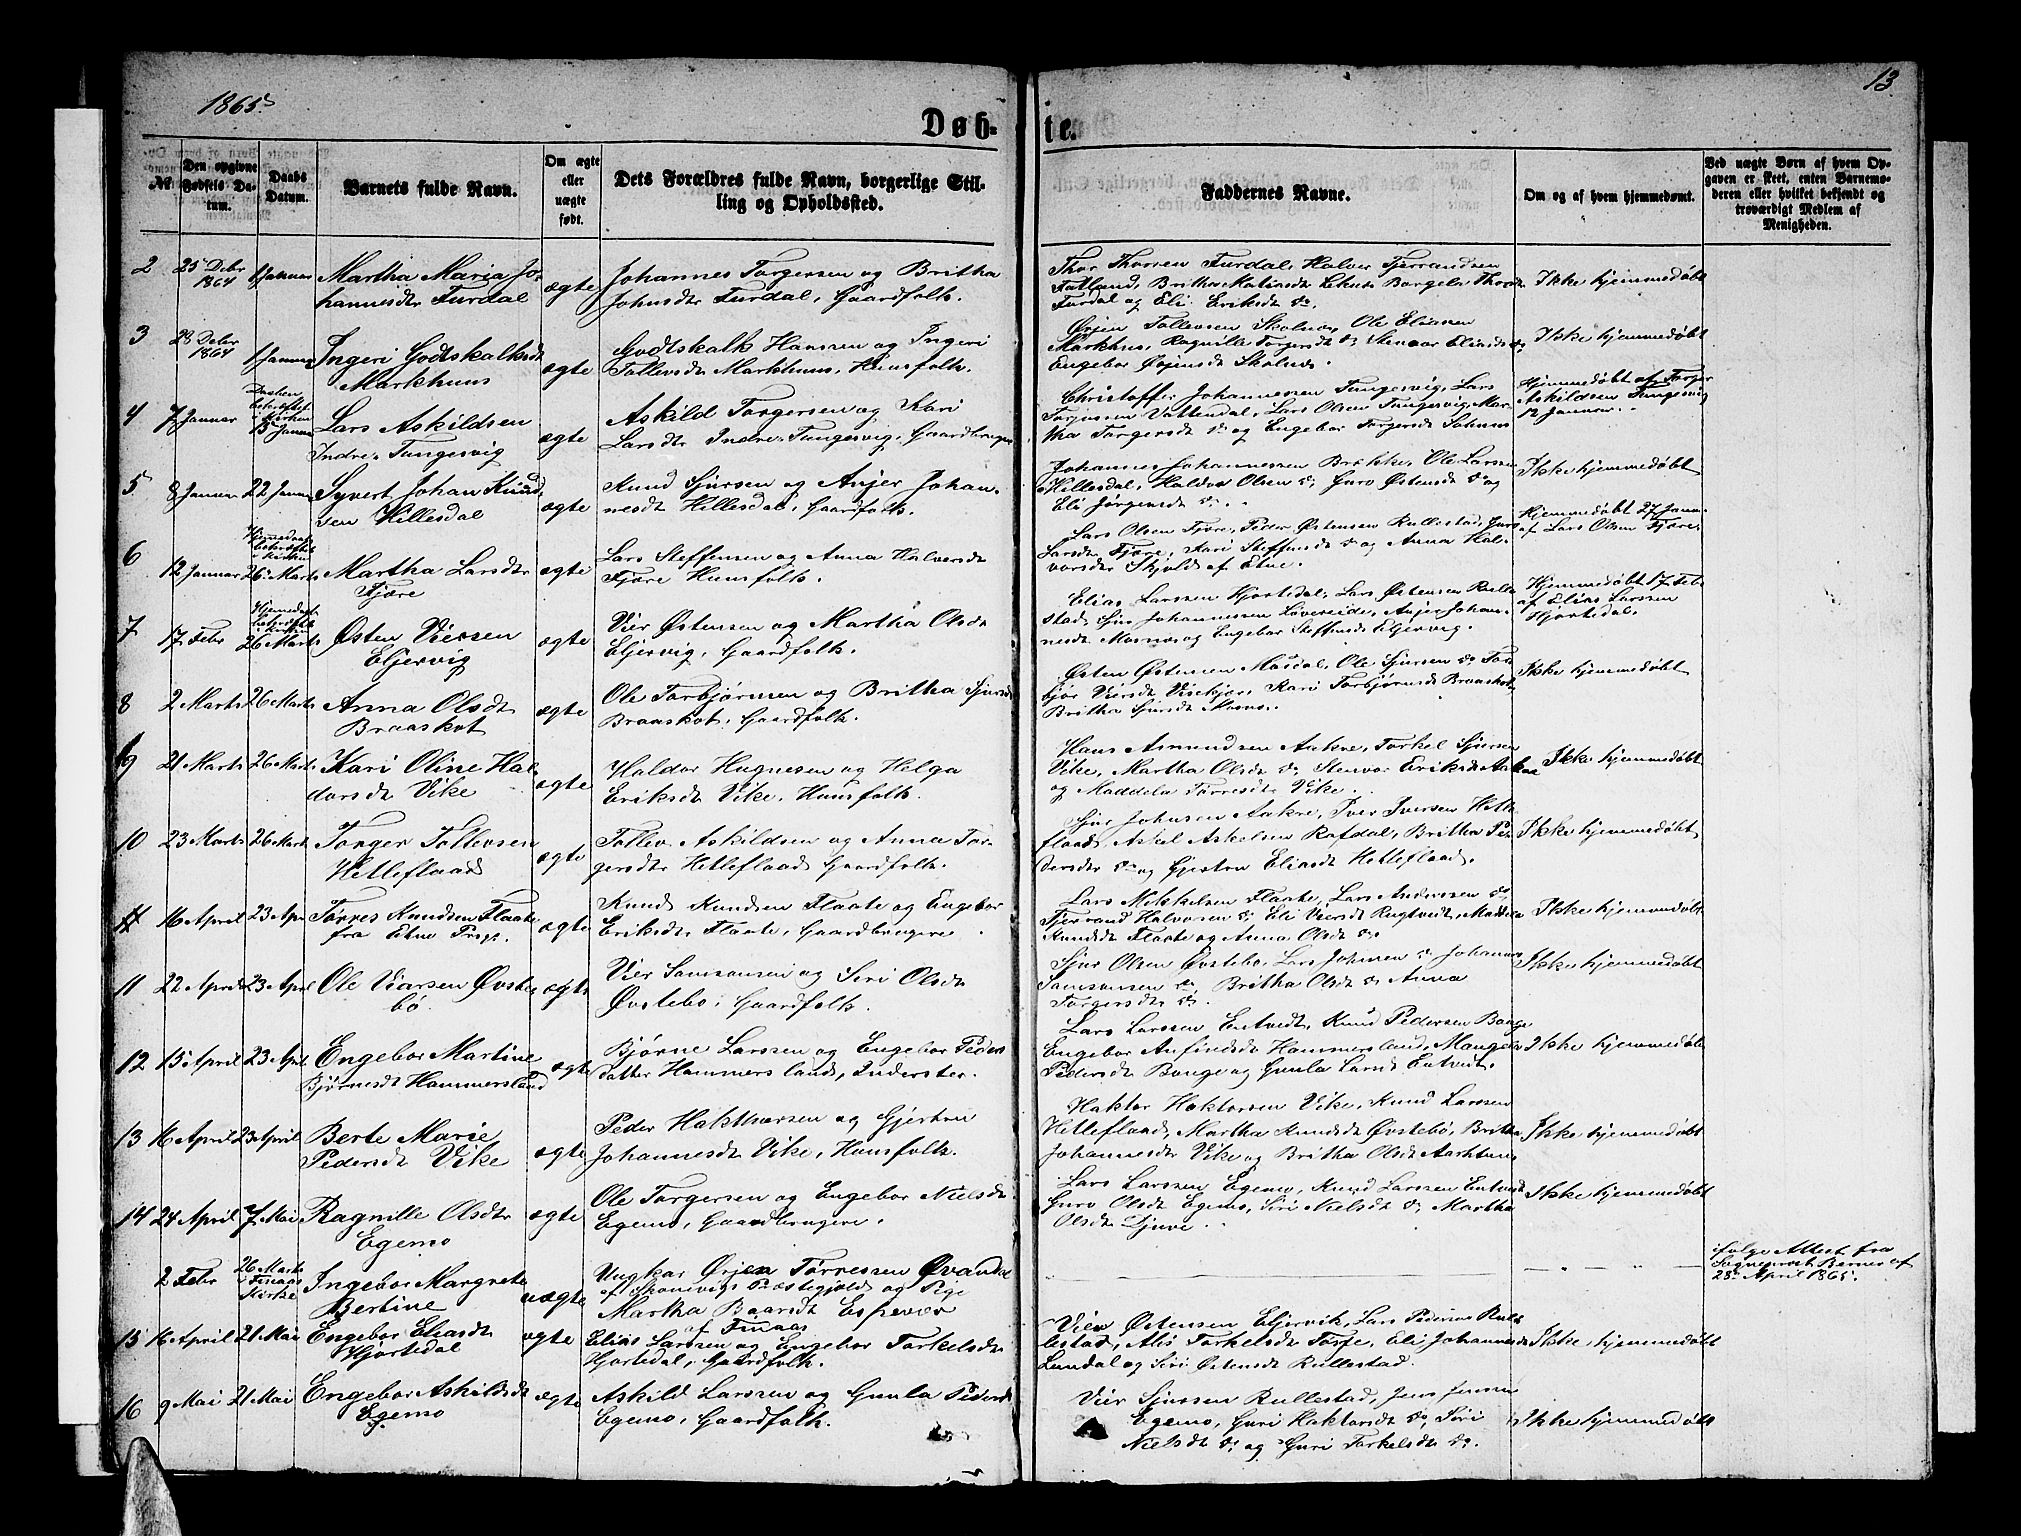 1865
13
Døb-
te.
№
Den opgivne Fødsels Da-
tum.
Daabs Datum.
Barnets fulde Navn.
Om ægte eller uægte født.
Dets Forældres fulde Navn, borgerlige Stil-
ling og Opholdssted.
Faddernes Navne.
Om og af hvem hjemmedømt.
Ved uægte Børn af hvem Op-
gaven er skeet, enten Barnemo-
deren eller hvilket bekjendt og
troværdigt Medlem af
Menigheden.
2 25 Debr 1864 1 Januar Martha Maria Jo-
hannesdtr Furdal
ægte
Johannes Torgersen og Britha
Johnsdtr Furdal, Gaardfolk.
Thor Thorsen Furdal, Halvor
Fatland, Britha
Furdal og Eli Eriksdt do
Ikke hjemmedøbt
3 28 Debr 1864 1 Januar Ingeri Godtskalksdt
Markhuus
ægte
Godtskalk Hansen og Ingeri
Tollevsdt Markhuus, Huusfolk.
Ørjen Tollevsen Ole Eliasen
Markhus, Ragnille Torgersdt do
Engebor Ørjensdt
Ikke hjemmedøbt
4 7 Januar 15 Januar Lars Askildsen
Indre-Tungesvig
ægte
Askild Torgersen og Kari
Larsdtr Indre-Tungesvig, Gaardbruger
Christoffer Johannessen Tungesvig, Lars
Torjussen Vattendal, Lars Olsen Tungesvig, Mar-
tha Torgersdt do og Engebor Torgersdt
Hjemmedøbt af Torger
Askildsen Tungesvig
12 Januar
5 8 Januar 22 Januar Syvert Johan Knud-
sen Hillesdal
ægte
Knud Sjursen og Anjer Johan-
nesdt Hillesdal, Gaardfolk.
Johannes Johannessen Brekke, Ole Larssen
Hillesdal, Haldor Olsen do, Guro Østensdt do og
Eli Jørgensdt do.
Ikke hjemmedøbt
6 12 Januar 26 Marts Martha Larsdtr
Fjære
ægte
Lars Steffensen og Anna Halvorsdt
Fjære Huusfolk.
Lars Olsen Fjære, Peder Østensen Rullestad, Guro
Larsdt Fjære, Kari Steffensdt do og Anna Hal-
vorsdtr Skjold af Etne.
Hjemmedøbt 27 Januar
af Lars Olsen Fjære
7 17 Febr 26 Marts Østen Viersen
Eljervig
ægte
Vier Østensen og Martha Olsdt
Eljervig, Gaardfolk.
Elias Larssen Hjortedal, Lars Østensen Rulle-
stad, Sjur Johannessen Løvereide, Anjer Johan-
nesdt Mosnæs og Engebor Steffensdt Eljervig.
Hjemmedøbt 17 Febr
af Elias Larssen
Hjortedal.
8 2 Marts 26 Marts Anna Olsdt
Braaskot
ægte
Ole Torbjørnsen og Britha Sjursdt
Braaskot, Gaardfolk.
Østen Østensen Ole Sjursen do Tor-
bjør Viersdt Kari Torbjørnsdt Braaskot,
Britha Sjursdt
Ikke hjemmedøbt
9 21 Marts 26 Marts Kari Oline Hal-
dorsdt Vike
ægte
Haldor Hugnesen og Helga
Eriksdt Vike, Huusfolk.
Hans Amundsen Aakre, Torkel Sjursen
Vike, Martha Olsdt do, Stenvor Eriksdt Aakre
og Maddela Torresdt Vike.
Ikke hjemmedøbt
10 23 Marts 26 Marts Torger Tollevsen
Hetleflaad
ægte
Tollev Askildsen og Anna Tor-
gersdtr Hetleflaad Gaardfolk.
Sjur Johnsen Aakre, Iver Iversen Hetle-
flaad, Askel Askelsen Rafdal, Britha Pe-
dersdtr do og Eliasdt Hetleflaad.
Ikke hjemmedøbt
16 April 23 Apr Torres Knudsen Flaate
fra Etne Prgj.
ægte
Knud Knudsen Flaate og Engebor
Eriksdt Flaate, Gaardbrugere.
Lars Mikkelsen Flaate, Lars Anderssen do
Halvorsen do Eli Viersdt
Knudsdt Flaate og Anna Olsdt do
Ikke hjemmedøbt
11 22 April 23 April Ole Viersen Øvste-
bø
ægte
Vier Samsonsen og Siri Olsdt
Øvstebø, Gaardfolk.
Sjur Olsen Øvstebø, Lars Johnsen do Johannes
Samsonsen do, Britha Olsdt do Anna
Torgersdt do.
Ikke hjemmedøbt
12 15 April 23 April Engebor Martine
Bjørnesdt Hammersland
ægte
Bjørne Larssen og Engebor Peders-
datter Hammersland, Inderster.
Lars Larssen Entvedt, Knud Pedersen Bauge
Engebor Anfindsdt Hammersland, Mangela
Pedersdt Bauge og Gunla Larsdt Entvedt.
Ikke hjemmedøbt
13 16 April 23 April Berte Marie
Pedersdt Vike
ægte
Peder Hakthorsen og Gjertrui
Johannesdt Vike, Huusfolk.
Haktor Haktorsen Vike, Knud Larssen
Hetleflaad, Martha Knudsdt Øvstebø, Britha
Johannesdtr Vike og Britha Olsdt
Ikke hjemmedøbt
14 24 April 7 Mai Ragnille Olsdtr
Egemo
ægte
Ole Torgersen og Engebor Nielsdt
Egemo, Gaardbrugere.
Lars Larssen Egemo, Knud Larssen Entvedt
Guro Olsdt Egemo, Siri Nielsdt do, Martha
Olsdt Djuve.
Ikke hjemmedøbt
2 Febr 26 Marts i Finaas Kirke Ingebor Margrete
Bertine
uægte
Ungkar Ørjen Tørressen
af Skonevigs Præstegjeld og Pige
Martha Baardsdt Espevær
af Finaas
ifølge Attest fra
Sogneprest Berner af
28 April 1865.
15 16 April 21 Mai Engebor Eliasdt
Hjortedal
ægte
Elias Larssen og Engebor Torkelsdt
Hjortedal, Gaardfolk.
Vier Østensen Eljervik, Lars Pedersen Rul-
lestad, Alis Torkelsdt Eli Johannesdt
Lundal og Siri Østensdt Rullestad.
Ikke hjemmedøbt
16 9 Mai 21 Mai Engebor Askildsdt
Egemo
ægte
Askild Larssen og Gunla Pedersdt
Egemo, Gaardfolk.
Vier Sjurssen Rullestad, Jens Jensen
Egemo, Guri Haktorsdt do, Siri
Nielsdt do og Guri Torkelsdt do.
Ikke hjemmedøbt